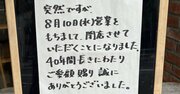 突然ですが
8月10日(水)営業を
もちまして、閉店させて
いただくことになりました。
40年間長きにわたり
ご愛顧賜り誠に
ありがとうございました。